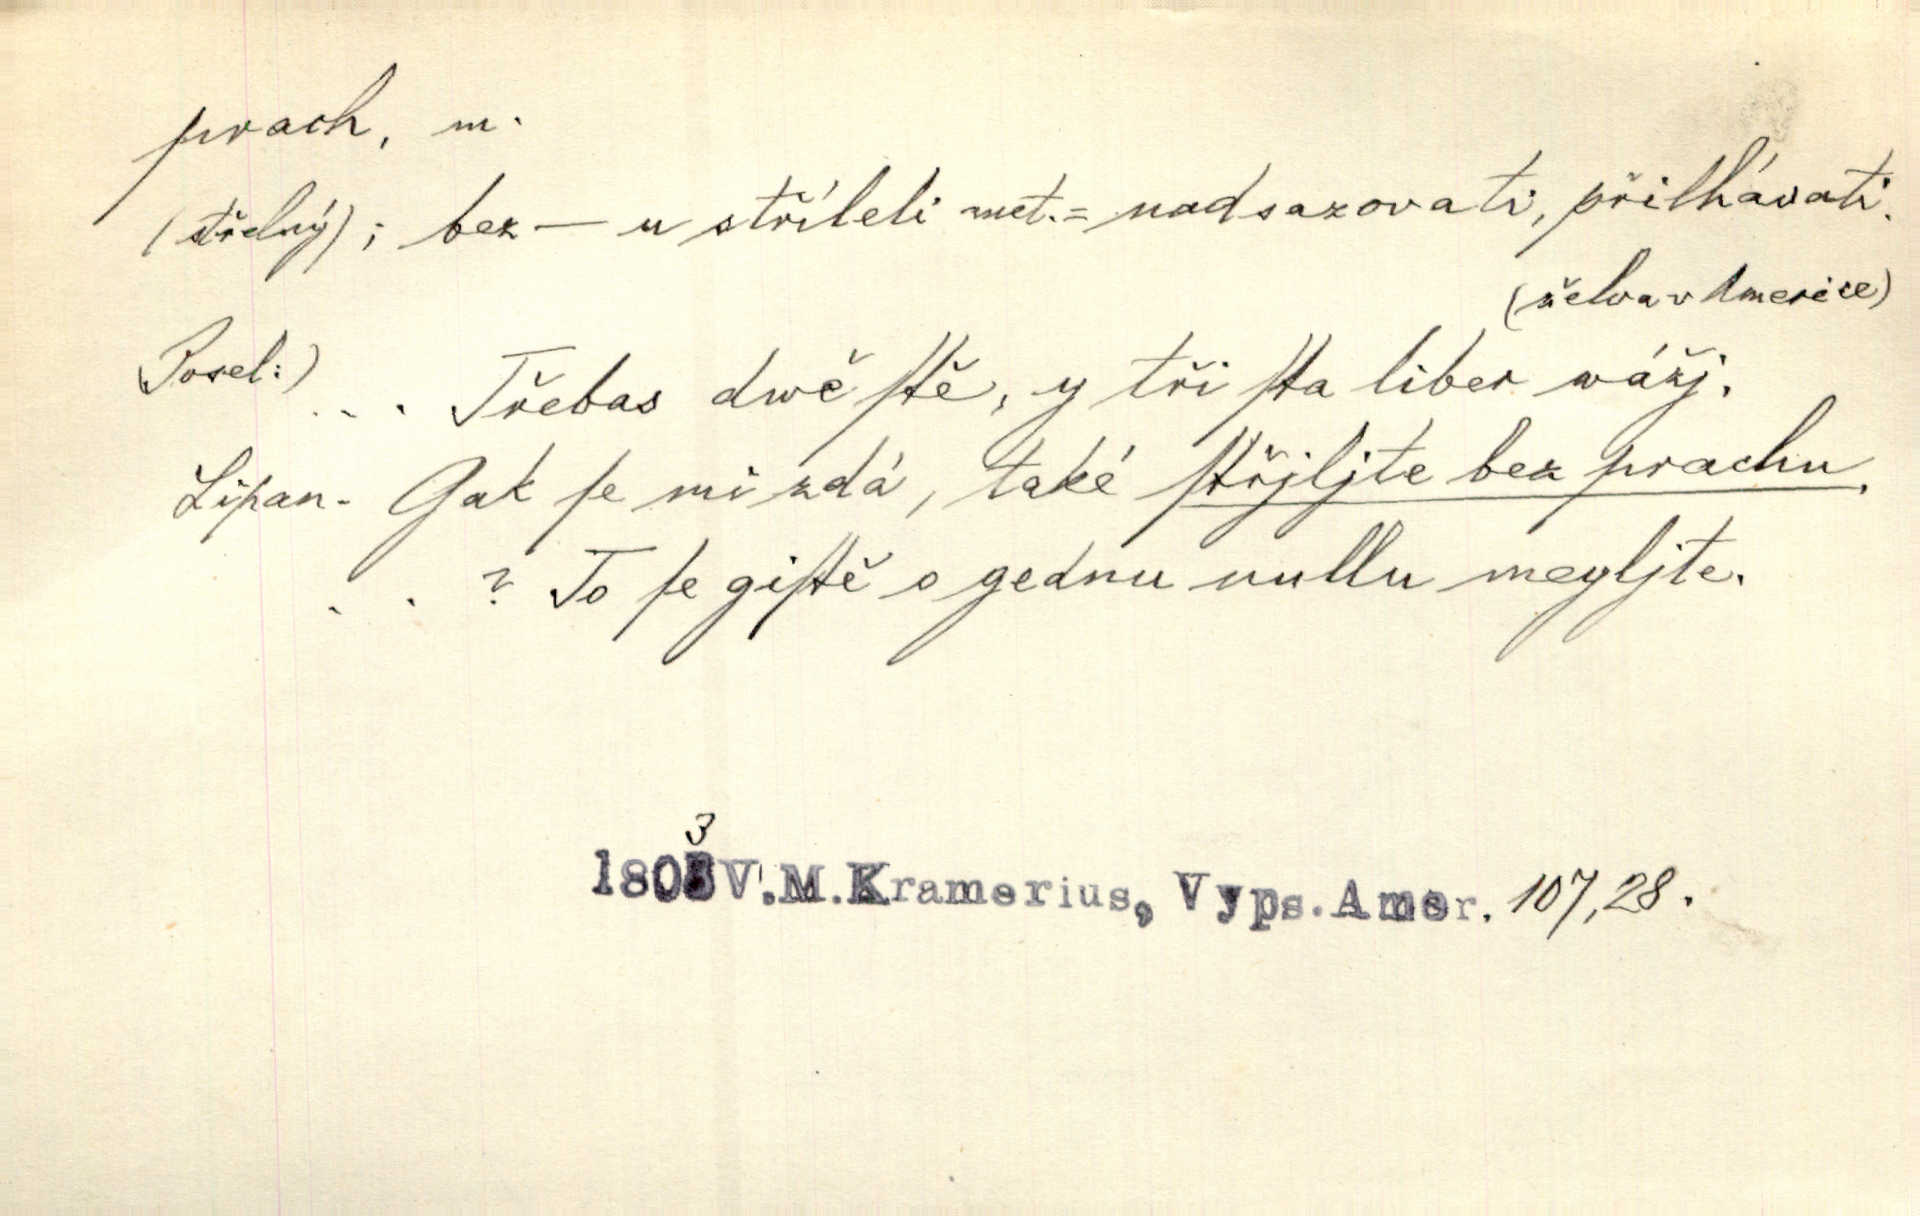 prach, m.
(střelný); bez — u stříleti met. = nadsazovati, přilhávati.
(želva v Americe)
(Posel:) ... Třebas dwě ſtě, y tři ſta liber wážj.
Lipan - Gak ſe mi zdá, také ſtřjljte bez prachu.
. . ? To ſe giſtě o gednu nullu megljte.
3
1803 V.M.Kramerius, Vyps.Amer. 107,28.